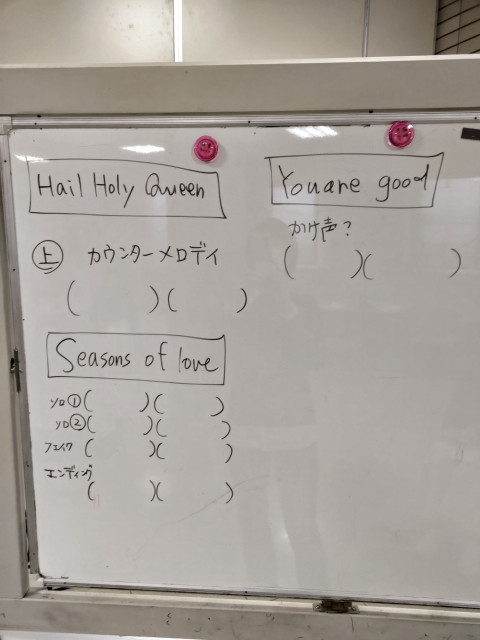 Hail Holy Queen
上 カウンターメロディ
(     )(     )
Seasons of love
ソロ①(     )(     )
ソロ②(     )(     )
フェイク(     )(     )
エンディング
(     )(     )
You are good
かけ声?
(     )(     )